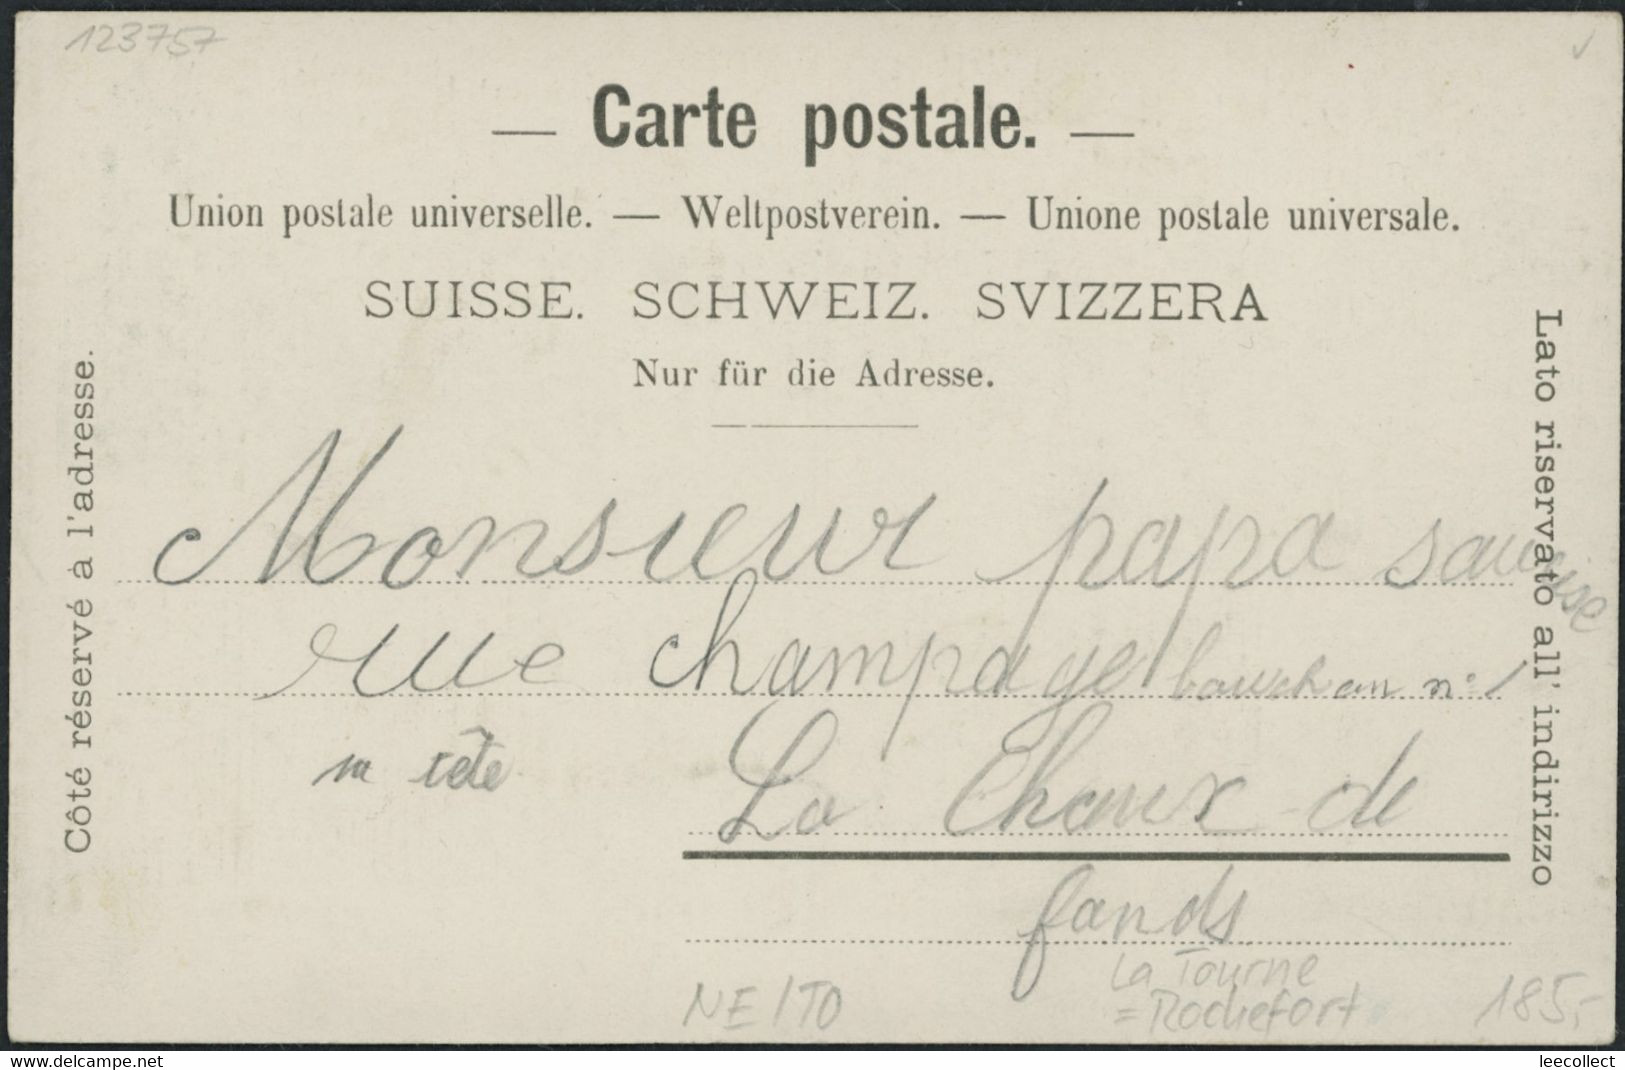 123757
— Carte postale. —
Union postale universelle. — Weltpostverein. — Unione postale universale.
SUISSE. SCHWEIZ. SVIZZERA
Nur für die Adresse.
Côté réservé à l'adresse.
Lato riservato all' indirizzo
Monsieur papa
rue champage n° 1
tête
La Chaux de
fonds
La Tourne
= Rochefort
NE/TO
185,-
the-best-of.com
leecollect